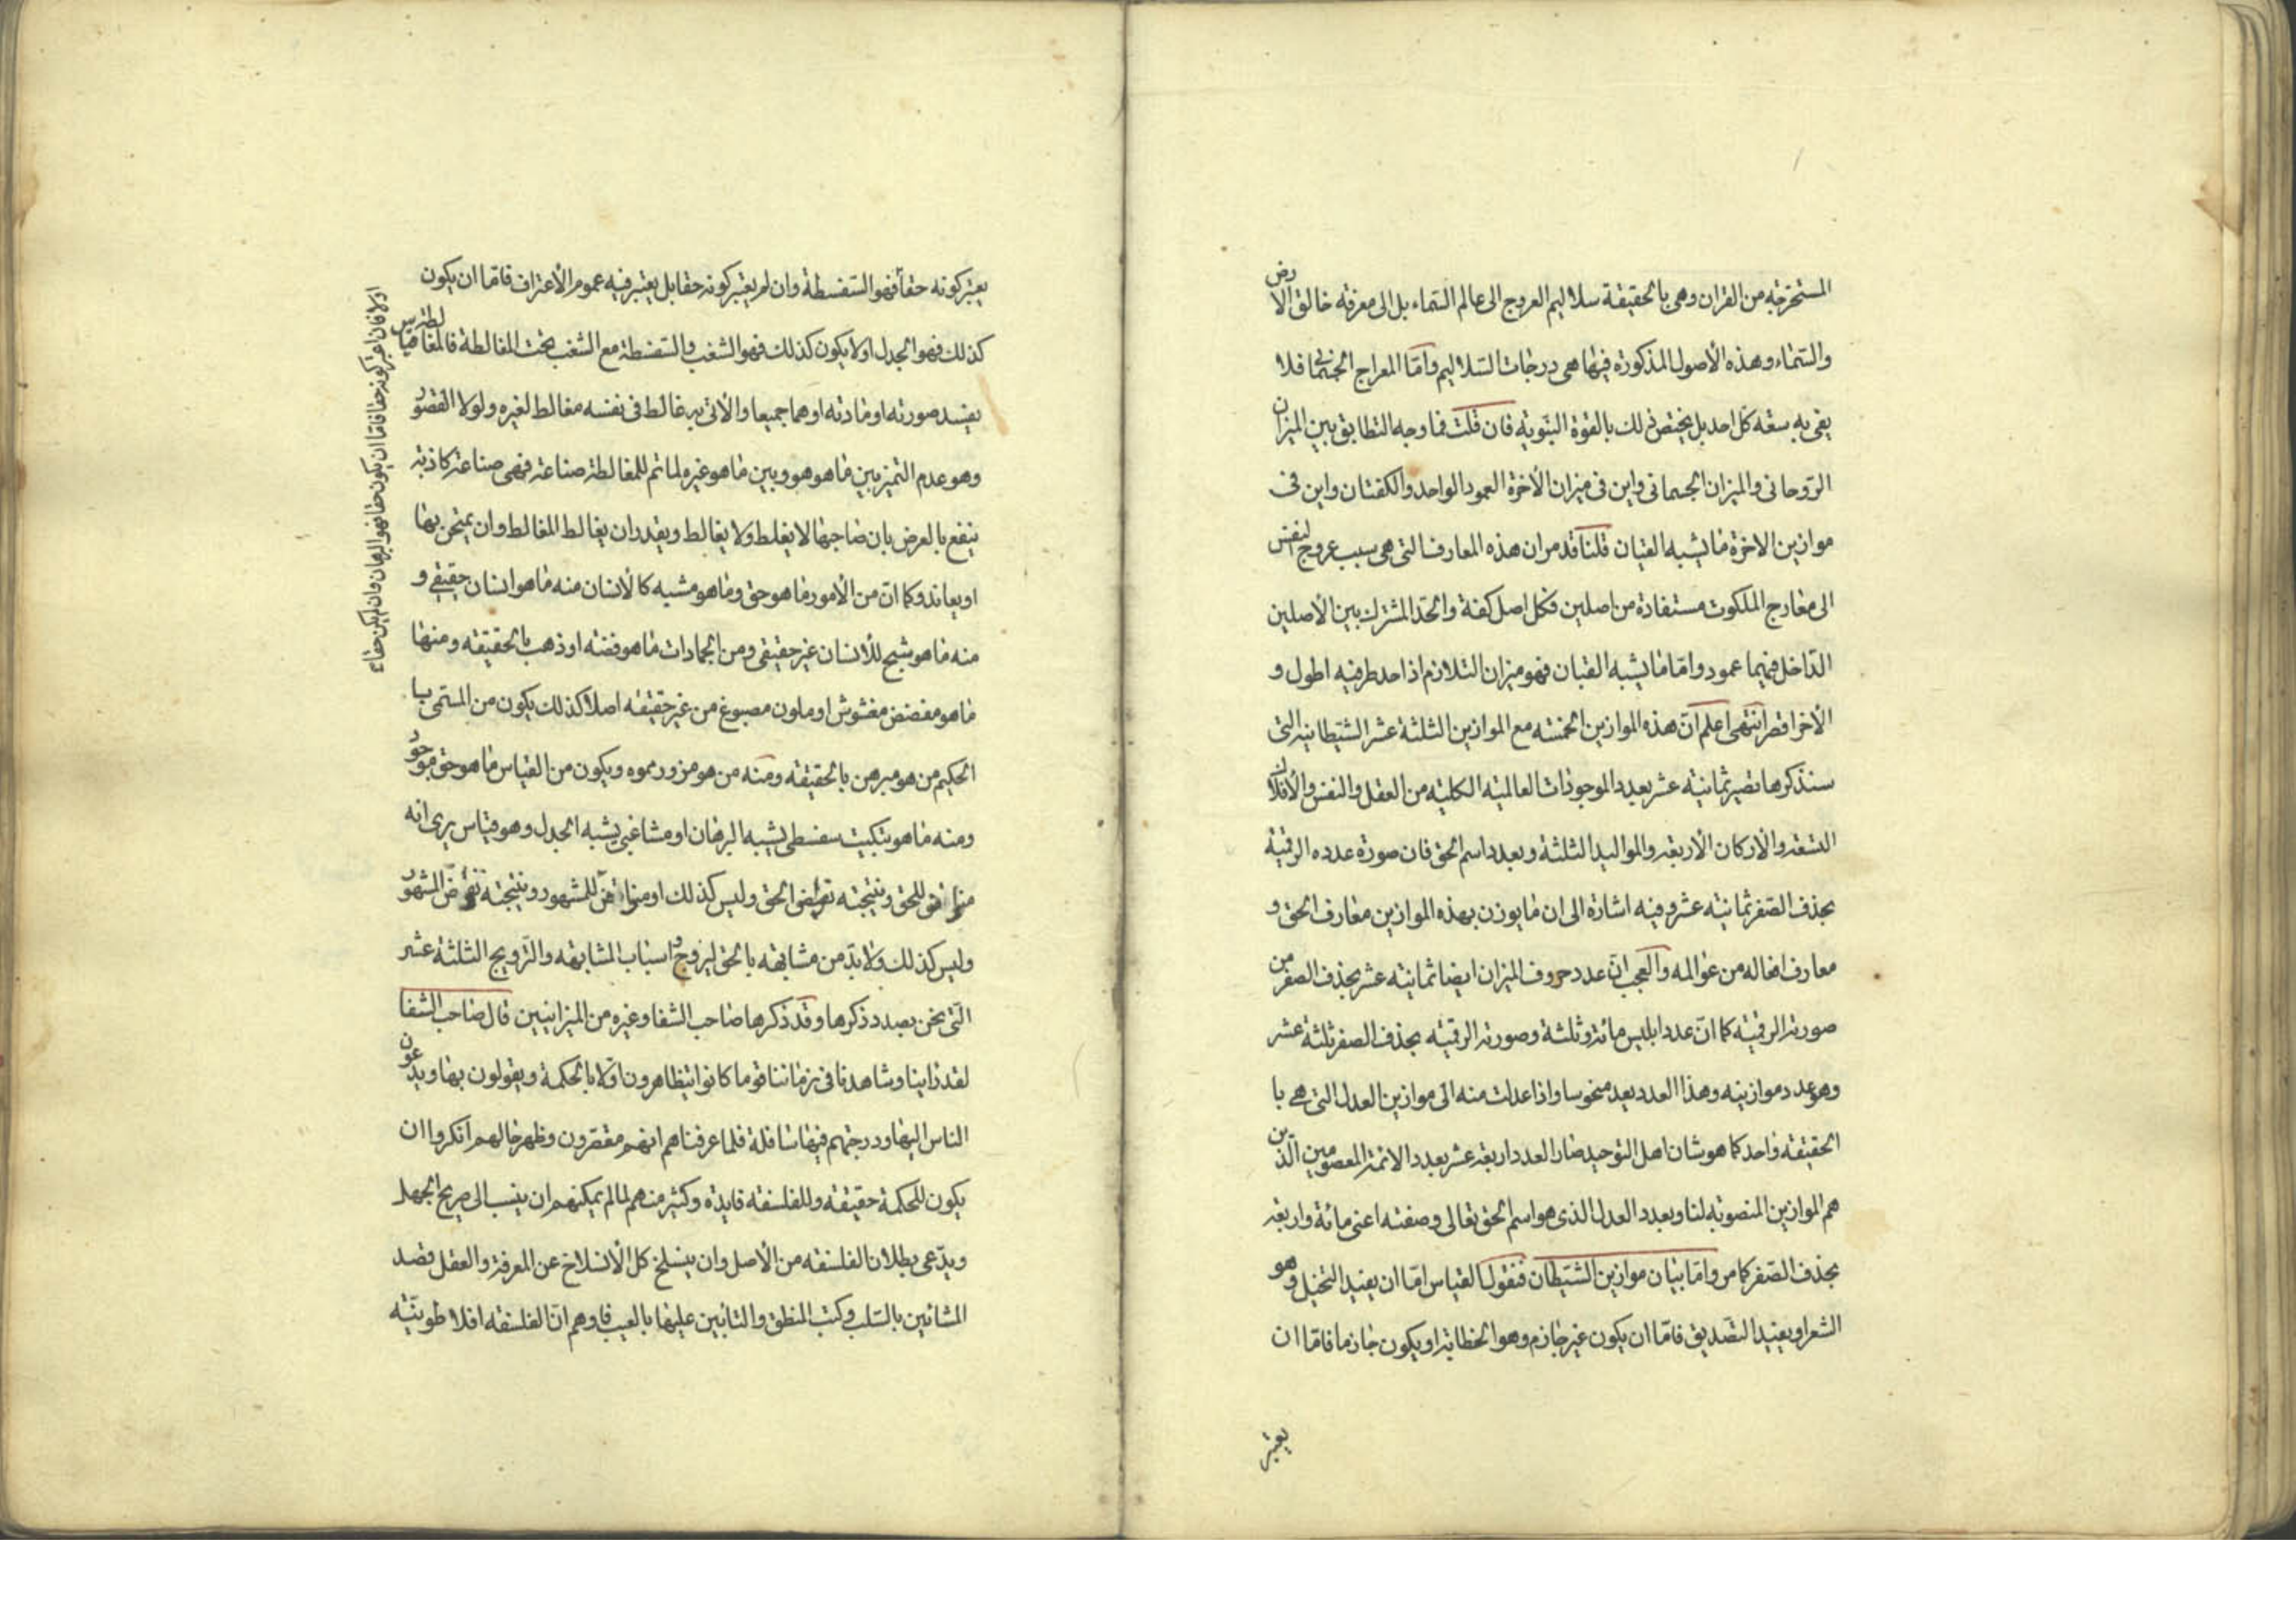 المستخرجه من القران وهى بالحقيقة سلاليم العروج الى عالم السماء بل الى معرفة خالق الارض
والسماء وهذه الأصول المذكورة فيها هى درجات السلاليم واما المعراج الجسمانى فلا
يفى به سعة كل احد بل يختص ذلك بالقوة النبوية فان قلت فما وجه التطابق بين الميزان
الروحانى والميزان الجسمانى واين فى ميزان الأخرة العمود الواحد والكفتان واين فى
موازين الاخرة ما يشبه القبان قلنا قد مر ان هذه المعارف التى هى سبب عروج النفس
الى معارج الملكوت مستفادة من اصلين فكل اصل كفة والحد المشترك بين الأصلين
الداخل فيهما عمود واما ما يشبه القبان فهو ميزان التلازم اذ احد طرفيه اطول و
الأخر اقصر انتهى اعلم ان هذه الموازين الخمسة مع الموازين الثلثة عشر الشيطانيه التى
سنذكرها تصير ثمانية عشر بعدد الموجودات العالمية الكلية من العقل والنفس والأفلاك
التسعة والاركان الأربعة والمواليد الثلثة وبعدد اسم الحق فان صورة عدده الرقمية
بحذف الصفر ثمانية عشر وفيه اشارة الى ان ما يوزن بهذه الموازين معارف الحق و
معارف افعاله من عوالمه والعجب ان عدد حروف الميزان ايضا ثمانية عشر بحذف الصفر من
صورته الرقمية كما ان عدد ابليس مائة وثلثة وصورته الرقمية بحذف الصفر ثلثة عشر
وهو عدد موازينه وهذا العدد يعد منحوسا واذا عدلت منه الى موازين العدل التى هى با
الحقيقة واحد كما هو شان اهل التوحيد صار العدد اربعة عشر بعدد الائمة المعصومين الذين
هم الموازين المنصوبة لنا وبعدد العدل الذى هو اسم الحق تعالى وصفته اعنى مائة واربعة
بحذف الصفر كما مر واما بيان موازين الشيطان فنقول القياس اما ان يفيد التخيل وهو
الشعر او يفيد التصديق فاما ان يكون غير جازم وهو الخطابة او يكون جازما فاما ان
يعتبر
يعتبر كونه حقا فهو السفسطة وان لم يعتبر كونه حقا بل يعتبر فيه عموم الأعتراف فاما ان يكون
كذلك فهو الجدل اولا يكون كذلك فهو الشغب والسفسطة مع الشغب تحت المغالطة فالمغالطة قياس
يفسد صورته او مادته او هما جميعا والأتى به غالط فى نفسه مغالط لغيره ولولا القصور
وهو عدم التميز بين ما هو هو وبين ما هو غيره لما تم للمغالطة صناعة فهى صناعة كاذبة
ينفع بالعرض بان صاحبها لا يغلط ولا يغالط ويقدر ان يغالط المغالط وان يمتحن بها
او يعاند وكما ان من الأمور ما هو حق وما هو مشبه كالأنسان منه ما هو انسان حقيقى و
منه ما هو شبح للأنسان غير حقيقى ومن الجمادات ما هو فضة او ذهب بالحقيقة ومنها
ما هو مفضض مغشوش او ملون مصبوغ من غير حقيقة اصلا كذلك يكون من المسمى با
الحكيم من هو مبرهن بالحقيقة ومنه من هو مزور مموه ويكون من القياس ما هو حق موجود
ومنه ما هو تبكيت سفسطى يشبه البرهان او مشاغبى يشبه الجدل وهو قياس يرى انه
مناقض للحق ونتيجته نقيض الحق وليس كذلك او مناقض للمشهور ونتيجته نقيض المشهور
وليس كذلك ولا بد من مشابهة بالحق ليروج واسباب المشابهة والترويج الثلثة عشر
التى نحن بصدد ذكرها وقد ذكرها صاحب الشفا وغيره من الميزانيين قال صاحب الشفا
لقد راينا وشاهدنا فى زماننا قوما كانوا يتظاهرون اولا بالحكمة ويقولون بها ويدعون
الناس اليها ودرجتهم فيها سافلة فلما عرفناهم انهم مقصرون وظهر حالهم انكروا ان
يكون للحكمة حقيقة وللفلسفة فايدة وكثير منهم لما لم يمكنهم ان ينسب الى صريح الجهل
ويدعى بطلان الفلسفة من الأصل وان ينسلخ كل الأنسلاخ عن المعرفة والعقل قصد
المشائين بالسلب وكتب المنطق والتأبين عليها بالعيب فاوهم ان الفلسفة افلاطونية
اولا فان اعتبر كونه حقا فاما ان يكون حقا فهو البرهان وان لم يكن حقا